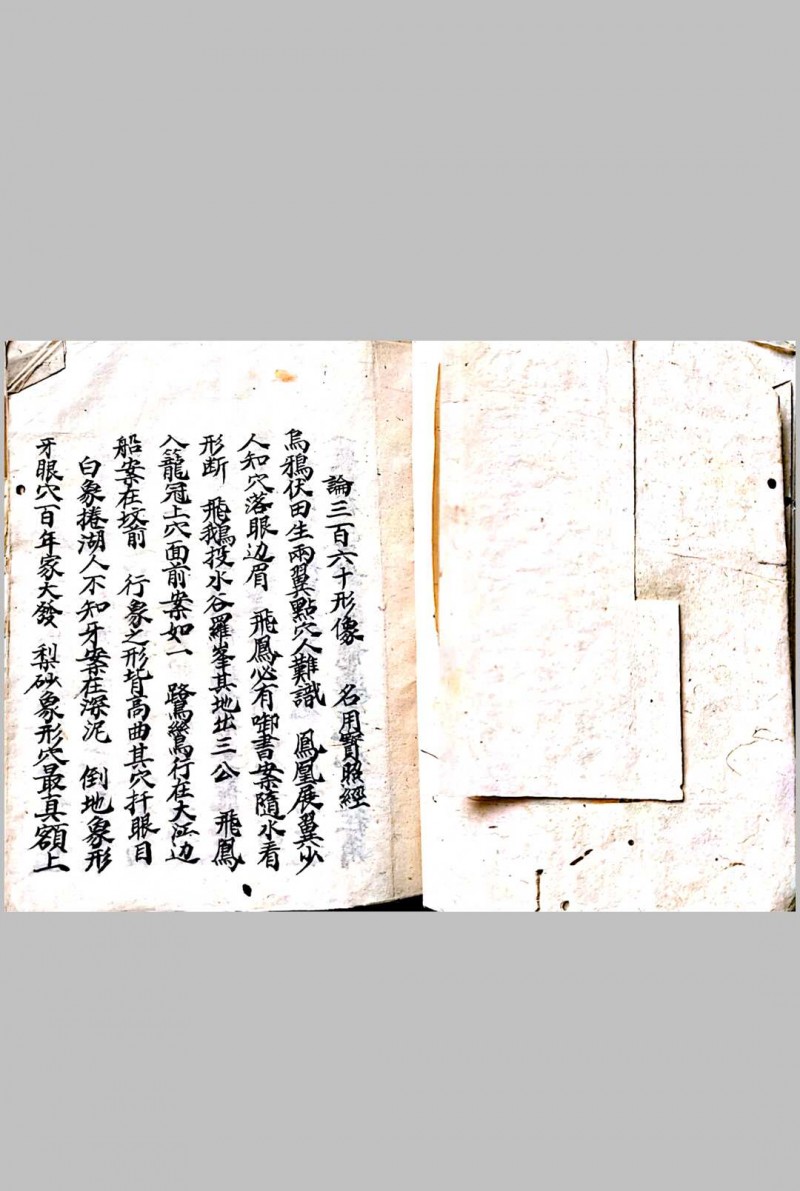 論三百六十形像 名用寶照經
烏鴉伏田生兩翼點穴人難識 鳳凰展翼少
人知穴落眼边眉 飛鳳必有啣書案隨水看
形断 飛鵝投水谷羅峯其地出三公 飛鳳
入籠冠上穴面前案如一 鷺鷥行在大江边
船案在坟前 行象之形皆高曲其穴扦眼目
白象捲湖人不知牙案在深泥 倒地象形
牙眼穴百年家大發 梨砂象形穴最真額上